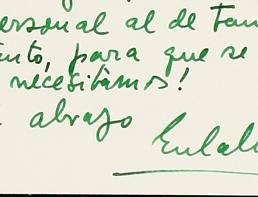 ersonal al de tam
nto, para que se
necesitamos!
abrazo
Eulal